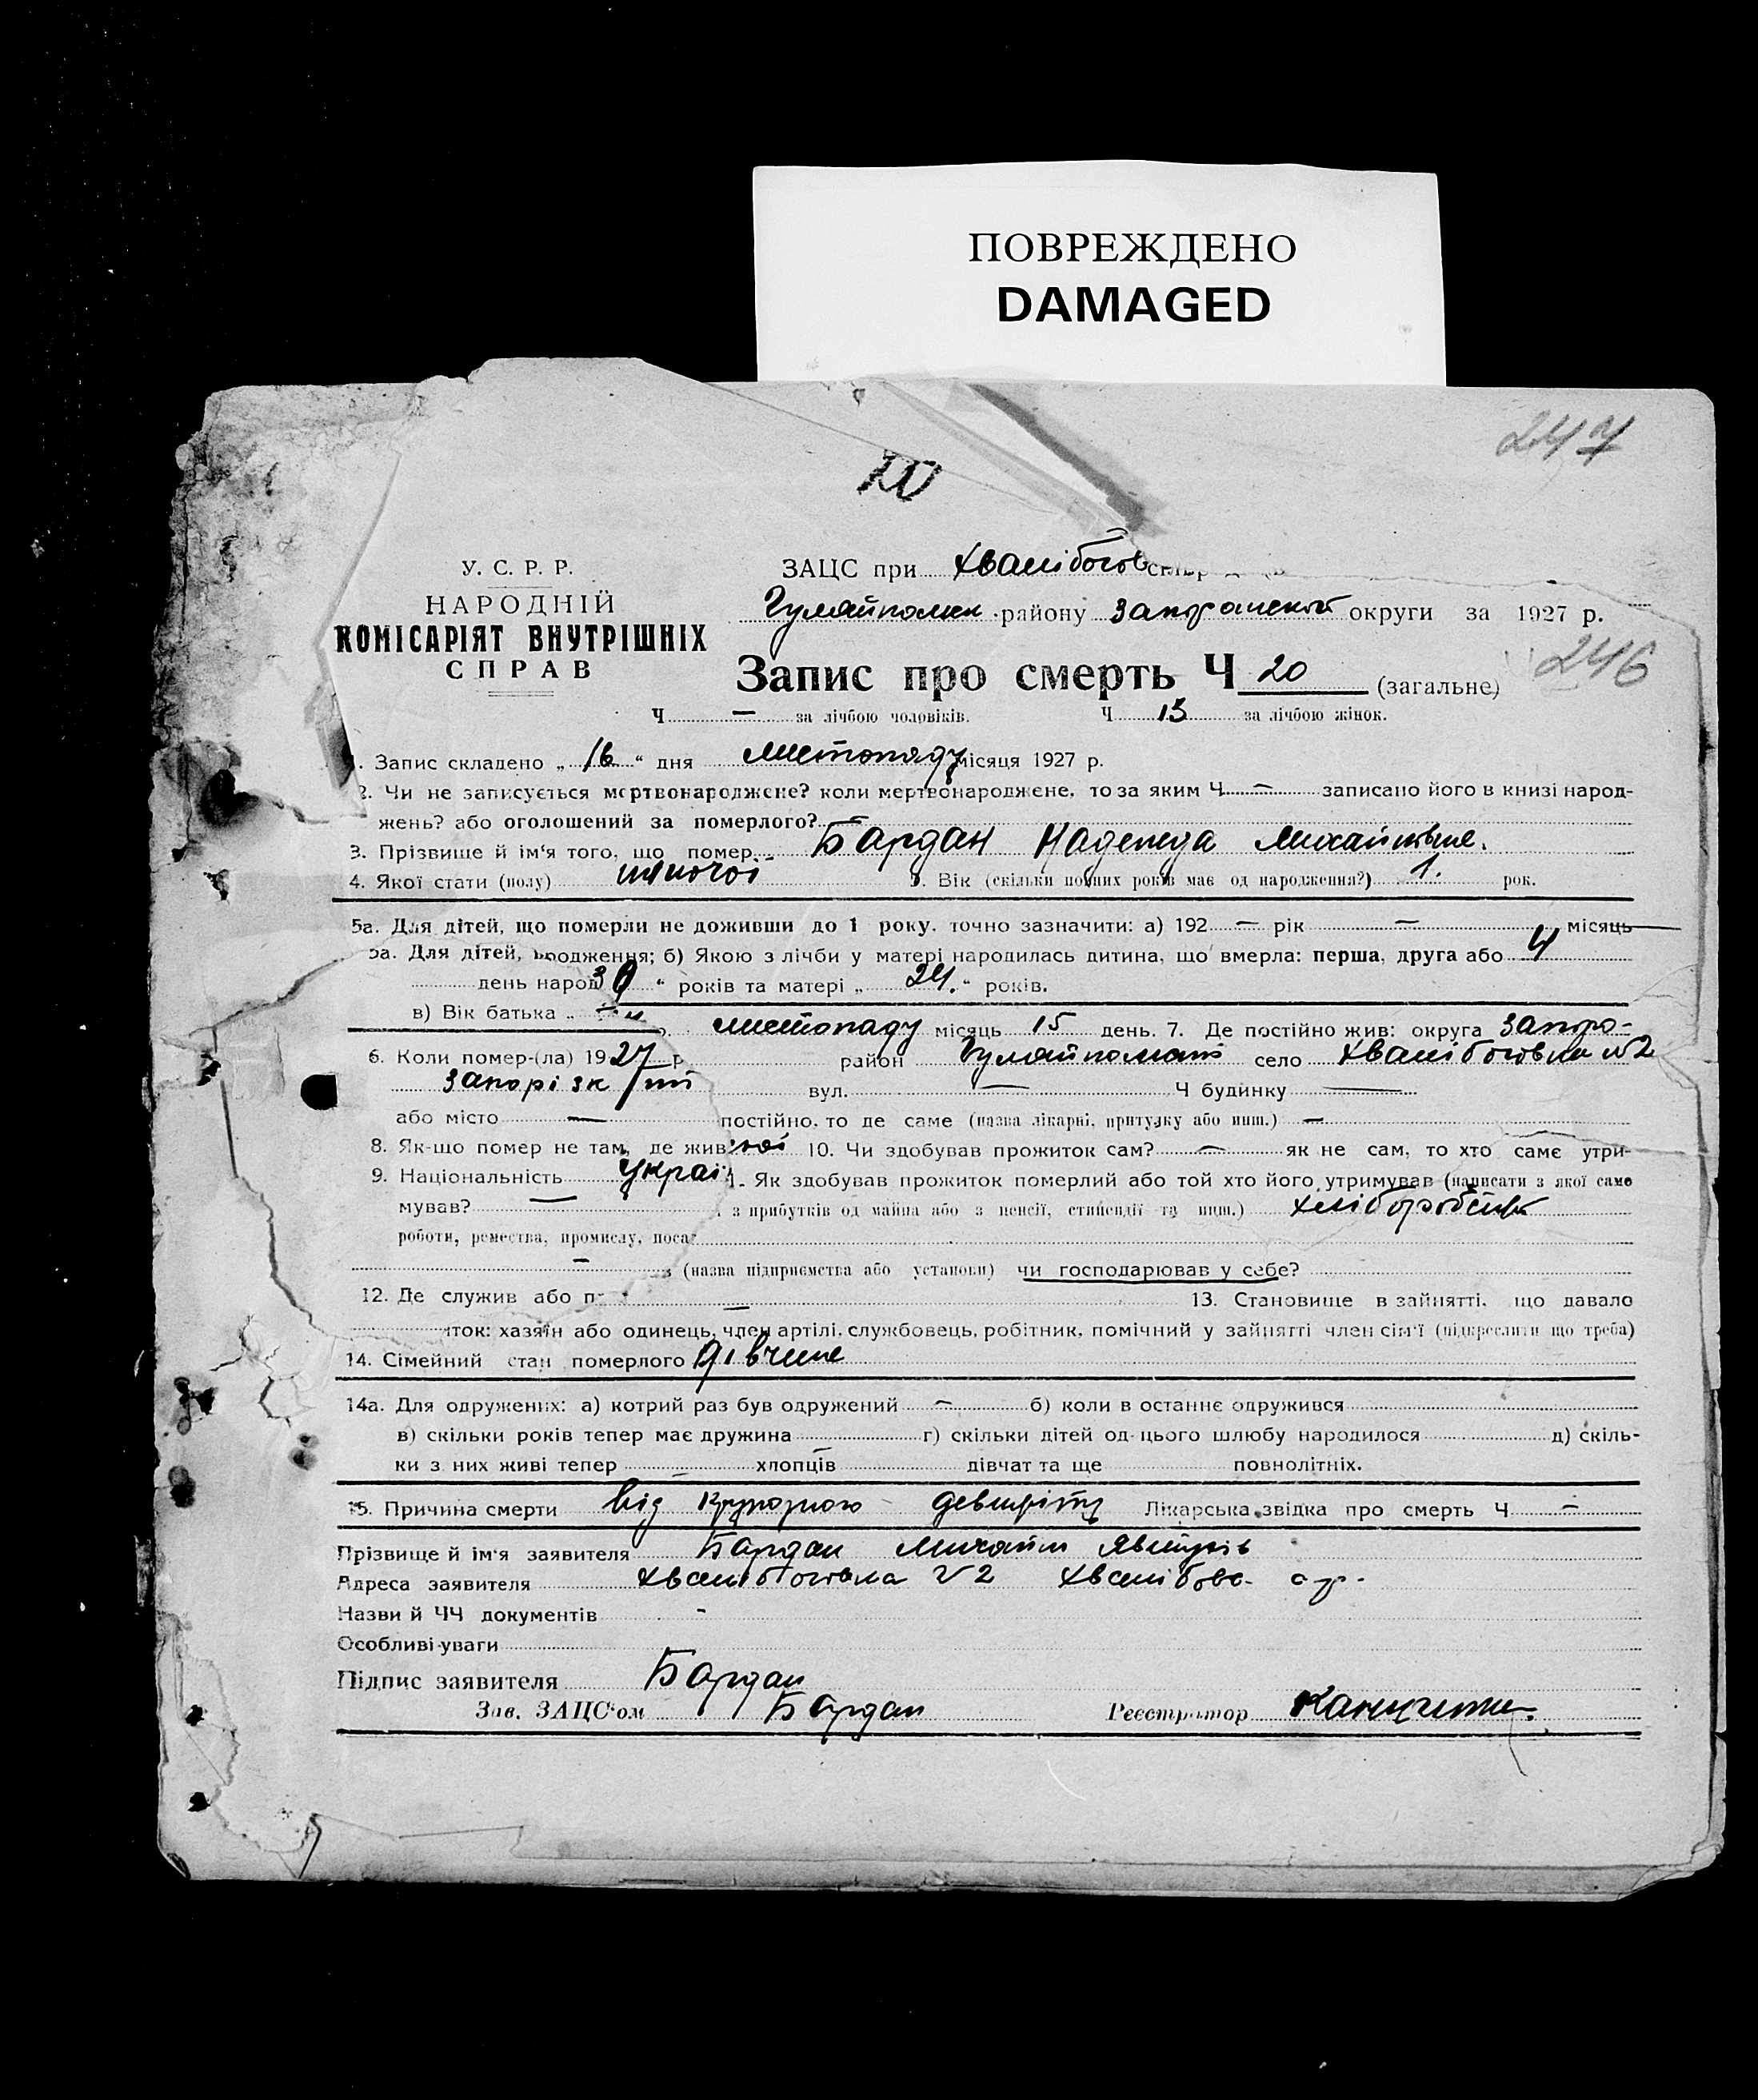 ПОВРЕЖДЕНО
DAMAGED
247
У. С. Р. Р.
НАРОДНІЙ
КОМІСАРІЯТ ВНУТРІШНІХ
СПРАВ
ЗАЦС при Хвалібогов
Гуляйпольск району Запорізької округи за 1927 р.
246
Запис про смерть Ч 20 (загальне)
Ч — за лічбою чоловіків. Ч 13 за лічбою жінок.
1. Запис складено „ 16 “ дня листопаду місяця 1927 р.
2. Чи не записується мертвонароджене? коли мертвонароджене, то за яким Ч — записано його в книзі народ-
жень? або оголошений за померлого? —
3. Прізвище й ім'я того, що помер Бардан Надежда Михайлівне.
4. Якої статі (полу) жіночої 5. Вік (скільки повних років має од народження?) 1. рок.
5а. Для дітей, що померли не доживши до 1 року, точно зазначити: а) 192 — рік — місяць —
5а. Для дітей, народження; б) Якою з лічби у матері народилась дитина, що вмерла: перша, друга або 4
день народ 30 “ років та матері „ 24. “ років.
в) Вік батька „
листопаду місяць 15 день. 7. Де постійно жив: округа Запоро-
6. Коли помер-(ла) 1927 р район Гуляйпольский село Хвалібоговка №2
Запорізк
вул. — Ч будинку —
або місто — постійно, то де саме (назва лікарні, притулку або инш.) —
8. Як-що помер не там, де жив 10. Чи здобував прожиток сам? — як не сам, то хто саме утри-
9. Національність Украї 1. Як здобував прожиток померлий або той хто його утримував (написати з якої саме
мував? — з прибутків од майна або з пенсії, стипендії та инш.) хліборобств
роботи, ремества, промислу, поса
— (назва підприємства або установи) чи господарював у себе?
12. Де служив або п — 13. Становище в зайнятті, що давало
иток: хазяїн або одинець, член артілі, службовець, робітник, помічний у зайнятті член сім'ї (підкреслити що треба)
14. Сімейний стан померлого Дівчине
14а. Для одружених: а) котрий раз був одружений — б) коли в останнє одружився
в) скільки років тепер має дружина — г) скільки дітей од цього шлюбу народилося д) скіль-
ки з них живі тепер — хлопців дівчат та ще повнолітніх.
15. Причина смерти Від крупозного Лікарська звідка про смерть Ч —
Прізвище й ім'я заявителя Бардан Михайло
Адреса заявителя Хвалібоговка №2
Назви й ЧЧ документів -
Особливі уваги
Підпис заявителя Бардан
Зав. ЗАЦС'ом Бардан Реєстратор